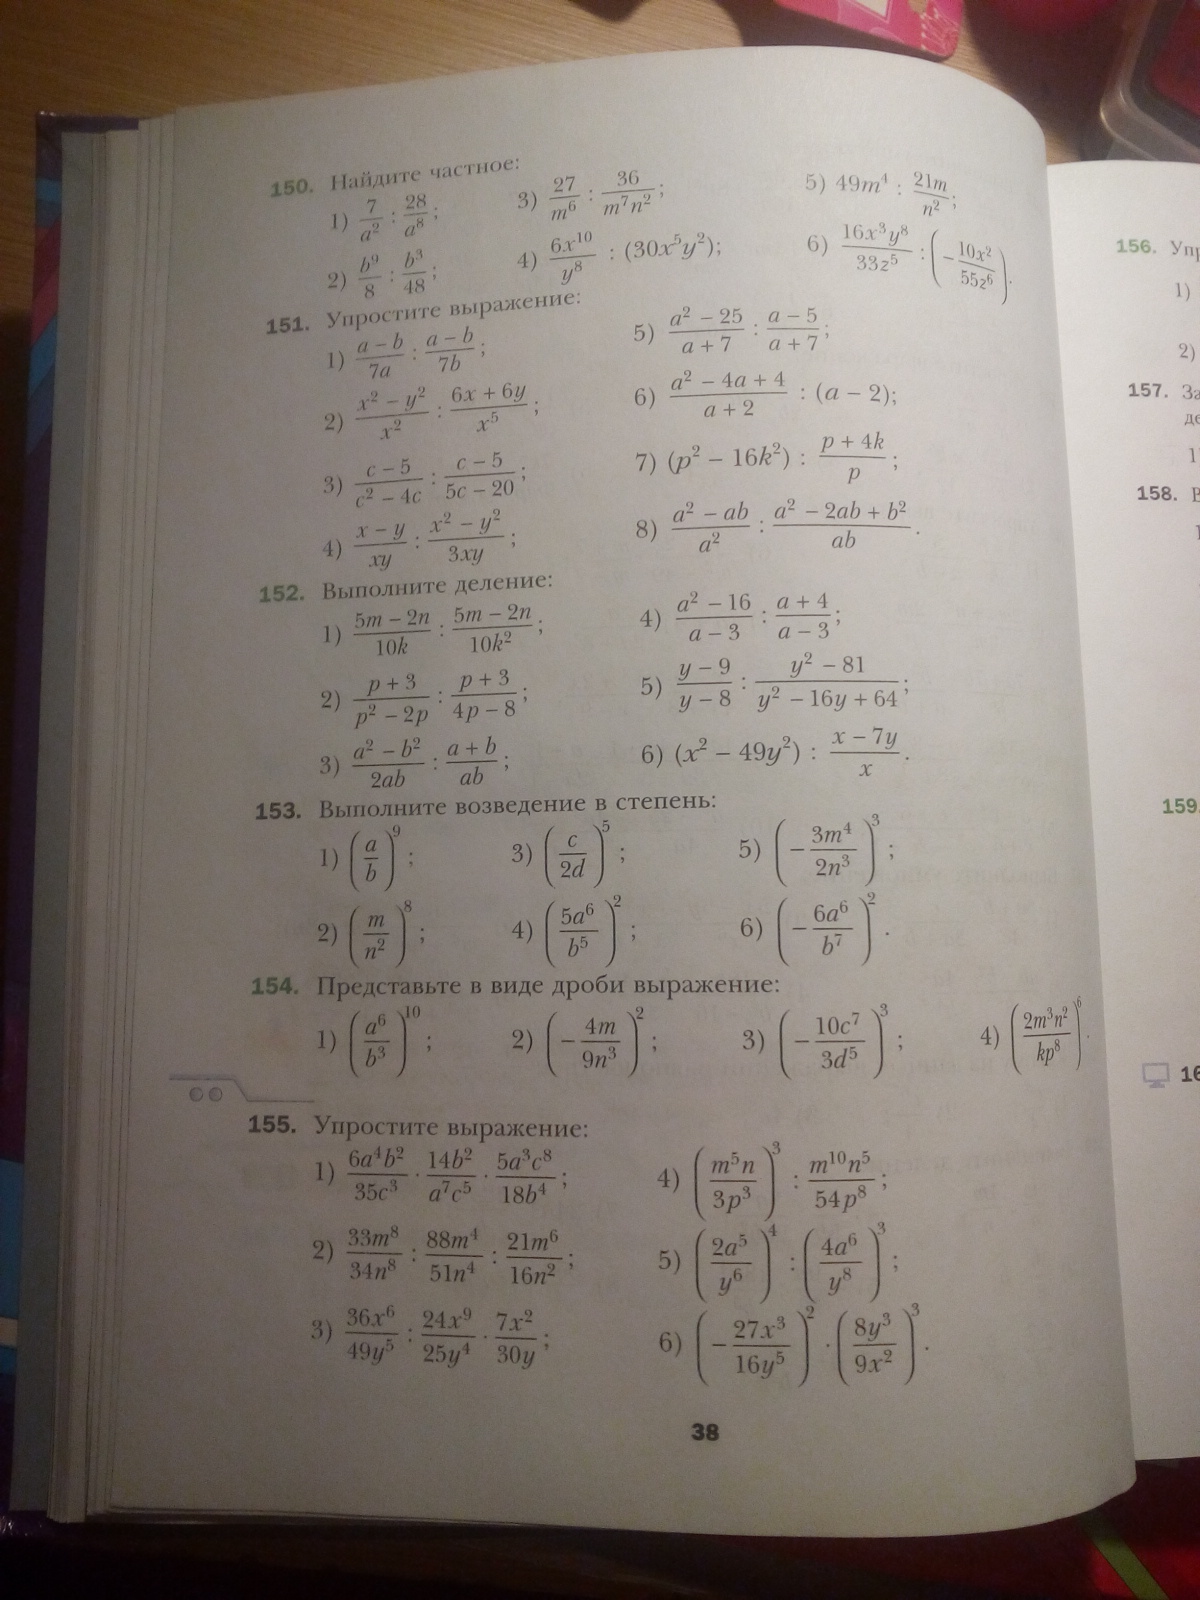 150. Найдите частное:
1) 7/a² : 28/a⁸; 3) 27/m⁶ : 36/(m⁷n²); 5) 49m⁴ : 21m/n²;
2) b⁹/8 : b³/48; 4) 6x¹⁰/y⁸ : (30x⁵y²); 6) 16x³y⁸/33z⁵ : (−10x²/55z⁶).
151. Упростите выражение:
1) (a − b)/7a : (a − b)/7b; 5) (a² − 25)/(a + 7) : (a − 5)/(a + 7);
2) (x² − y²)/x² : (6x + 6y)/x⁵; 6) (a² − 4a + 4)/(a + 2) : (a − 2);
3) (c − 5)/(c² − 4c) : (c − 5)/(5c − 20); 7) (p² − 16k²) : (p + 4k)/p;
4) (x − y)/xy : (x² − y²)/3xy; 8) (a² − ab)/a² : (a² − 2ab + b²)/ab.
152. Выполните деление:
1) (5m − 2n)/10k : (5m − 2n)/10k²; 4) (a² − 16)/(a − 3) : (a + 4)/(a − 3);
2) (p + 3)/(p² − 2p) : (p + 3)/(4p − 8); 5) (y − 9)/(y − 8) : (y² − 81)/(y² − 16y + 64);
3) (a² − b²)/2ab : (a + b)/ab; 6) (x² − 49y²) : (x − 7y)/x.
153. Выполните возведение в степень:
1) (a/b)⁹; 3) (c/2d)⁵; 5) (−3m⁴/2n³)³;
2) (m/n²)⁸; 4) (5a⁶/b⁵)²; 6) (−6a⁶/b⁷)².
154. Представьте в виде дроби выражение:
1) (a⁶/b³)¹⁰; 2) (−4m/9n³)²; 3) (−10c⁷/3d⁵)³; 4) (2m³n²/kp⁸)⁶.
155. Упростите выражение:
1) 6a⁴b²/35c³ · 14b²/a⁷c⁵ · 5a³c⁸/18b⁴; 4) (m⁵n/3p³)³ : m¹⁰n⁵/54p⁸;
2) 33m⁸/34n⁸ : 88m⁴/51n⁴ : 21m⁶/16n²; 5) (2a⁵/y⁶)⁴ : (4a⁶/y⁸)³;
3) 36x⁶/49y⁵ : 24x⁹/25y⁴ · 7x²/30y; 6) (−27x³/16y⁵)² · (8y³/9x²)³.
38
156.
1)
2)
157.
1
158.
159.
16